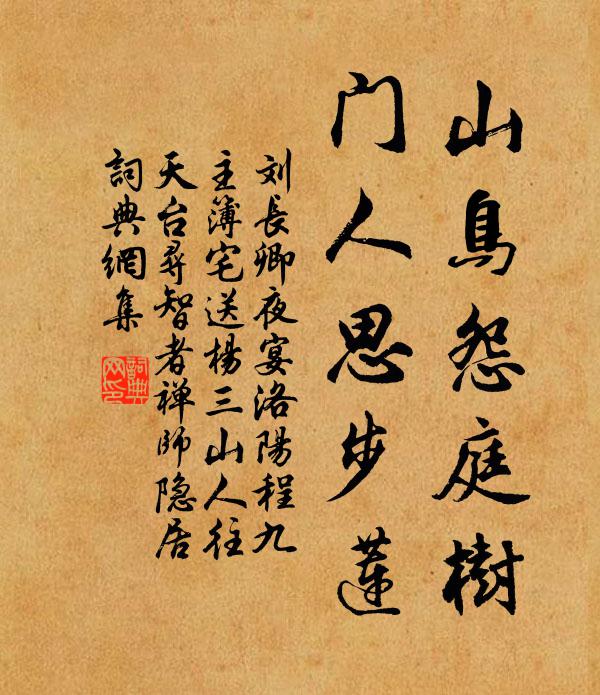 山鳥怨庭樹
門人思步蓮
刘長卿夜宴洛陽程九
主簿宅送楊三山人往
天台尋智者禅師隐居
詞典網集
詞典
网印